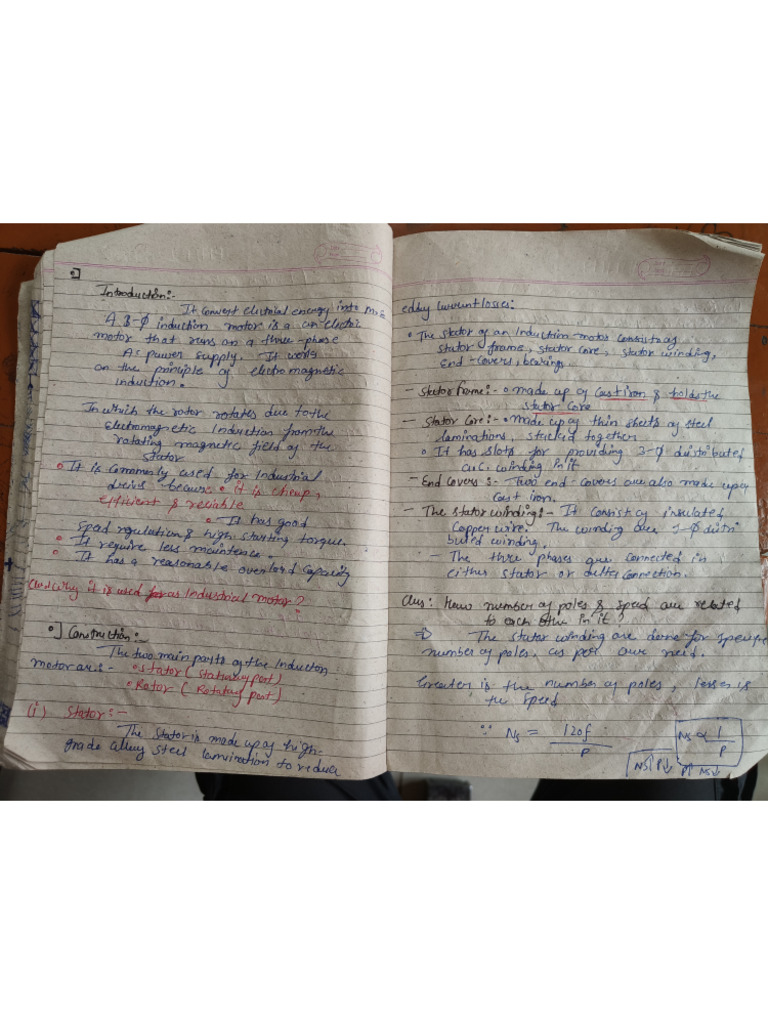 Introduction:-
It convert electrical energy into M.E
A 3-Φ induction motor is a an electric
motor that runs on a three-phase
Ac power supply. It works
on the principle of electromagnetic
induction.
In which the rotor rotates due to the
Electromagnetic Induction from the
rotating magnetic field of the
stator
• It is commonly used for Industrial
drives because • it is cheap,
efficient & reliable
• It has good
speed regulation & high starting torque.
• It require less maintence.
• It has a reasonable overload capacity
Why it is used for as Industrial motor?
•] Construction:-
The two main parts of the Induction
motor are:- • Stator (Stationary part)
• Rotor (Rotatary part)
(i) Stator:-
The stator is made up of high-
grade alloy steel lamination to reduce
eddy current losses:
• The stator of an Induction motor consists of
stator frame, stator core, stator winding,
End-covers, bearings.
- Stator frame:- • made up of cast iron & holds the
stator core
- Stator Core:- • made up of thin sheets of steel
laminations, stacked together
• It has slots for providing 3-Φ distributed
a.c. winding in it
- End Covers:- Two end-covers are also made up of
cast iron.
- The stator winding:- It consist of insulated
Copper wire. The winding are 3-Φ distri
buted winding.
- The three phases are connected in
either stator or delta connection.
Ques: How number of poles & speed are related
to each other in it?
⇒ The stator winding are done for specific
number of poles, as per our need.
Greater is the number of poles, lesser is
the speed
∵ Ns = 120f / P
Ns ∝ 1 / P
NS↑ P↓
P↑ Ns↓